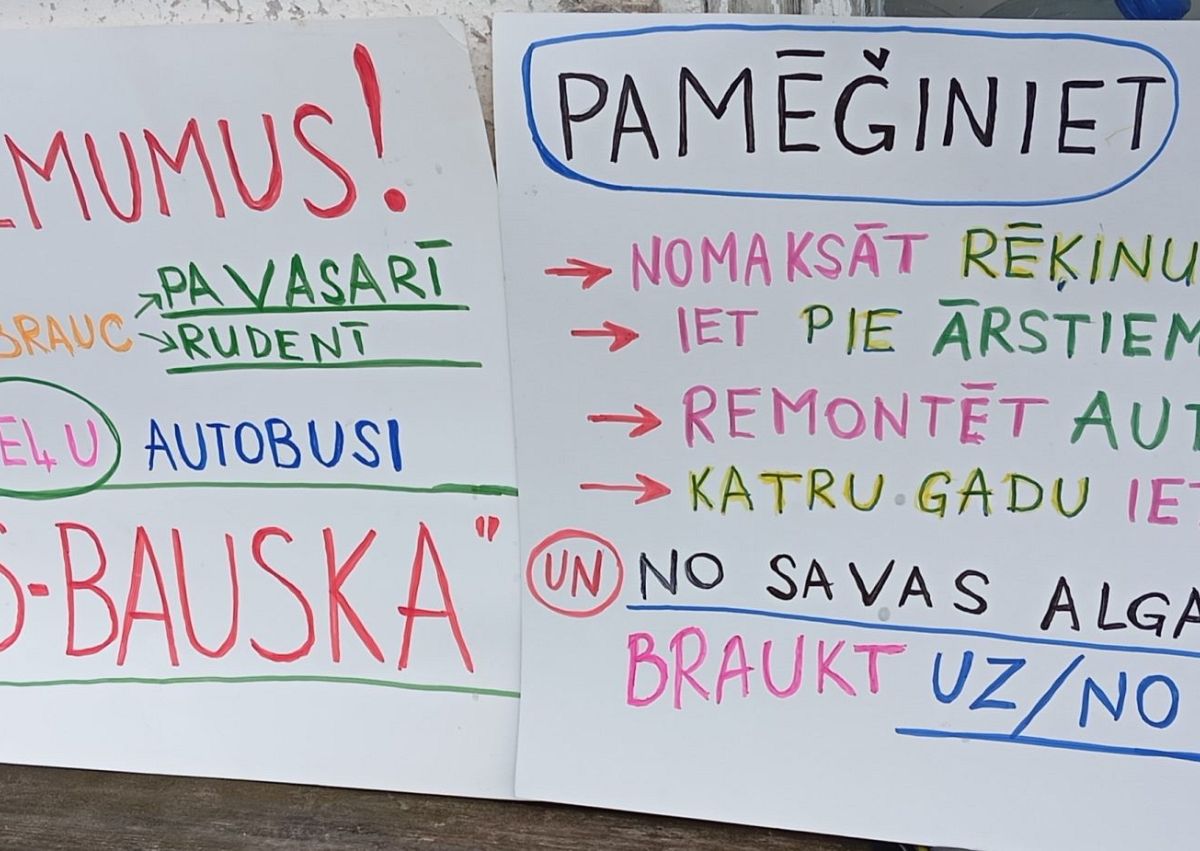 LMUMUS!
BRAUC PAVASARĪ
RUDENĪ
EĻU AUTOBUSI
S-BAUSKA"
PAMĒĞINIET
→ NOMAKSĀT RĒĶINU
→ IET PIE ĀRSTIEM
→ REMONTĒT AUT
→ KATRU GADU IET
UN NO SAVAS ALGA
BRAUKT UZ/NO